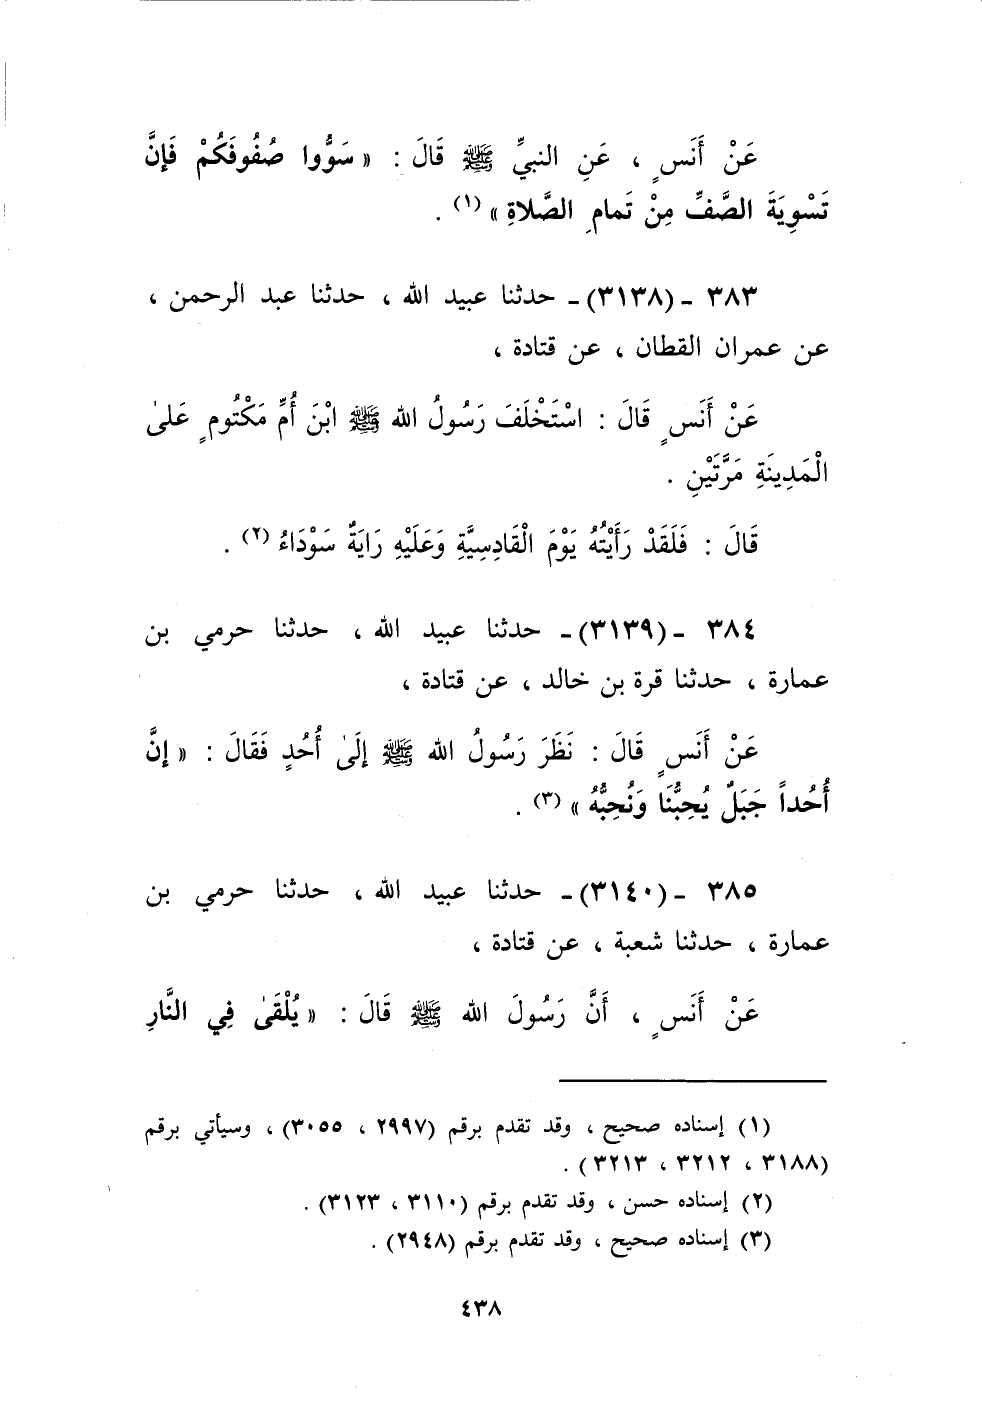 عَنْ أَنَسٍ ، عَنِ النبيِّ ﷺ قَالَ : « سَوُّوا صُفُوفَكُمْ فَإِنَّ
تَسْوِيَةَ الصَّفِّ مِنْ تَمامِ الصَّلاةِ » (١) .
٣٨٣ - (٣١٣٨) - حدثنا عبيد الله ، حدثنا عبد الرحمن ،
عن عمران القطان ، عن قتادة ،
عَنْ أَنَسٍ قَالَ : اسْتَخْلَفَ رَسُولُ الله ﷺ ابْنَ أُمِّ مَكْتُومٍ عَلىٰ
الْمَدِينَةِ مَرَّتَيْنِ .
قَالَ : فَلَقَدْ رَأَيْتُهُ يَوْمَ الْقَادِسِيَّةِ وَعَلَيْهِ رَايَةٌ سَوْدَاءُ (٢) .
٣٨٤ - (٣١٣٩) - حدثنا عبيد الله ، حدثنا حرمي بن
عمارة ، حدثنا قرة بن خالد ، عن قتادة ،
عَنْ أَنَسٍ قَالَ : نَظَرَ رَسُولُ الله ﷺ إِلَىٰ أُحُدٍ فَقَالَ : « إِنَّ
أُحُداً جَبَلٌ يُحِبُّنَا وَنُحِبُّهُ » (٣) .
٣٨٥ - (٣١٤٠) - حدثنا عبيد الله ، حدثنا حرمي بن
عمارة ، حدثنا شعبة ، عن قتادة ،
عَنْ أَنَسٍ ، أَنَّ رَسُولَ الله ﷺ قَالَ : « يُلْقَىٰ فِي النَّارِ
(١) إسناده صحيح ، وقد تقدم برقم (٢٩٩٧ ، ٣٠٥٥) ، وسيأتي برقم
(٣١٨٨ ، ٣٢١٢ ، ٣٢١٣) .
(٢) إسناده حسن ، وقد تقدم برقم (٣١١٠ ، ٣١٢٣) .
(٣) إسناده صحيح ، وقد تقدم برقم (٢٩٤٨) .
٤٣٨